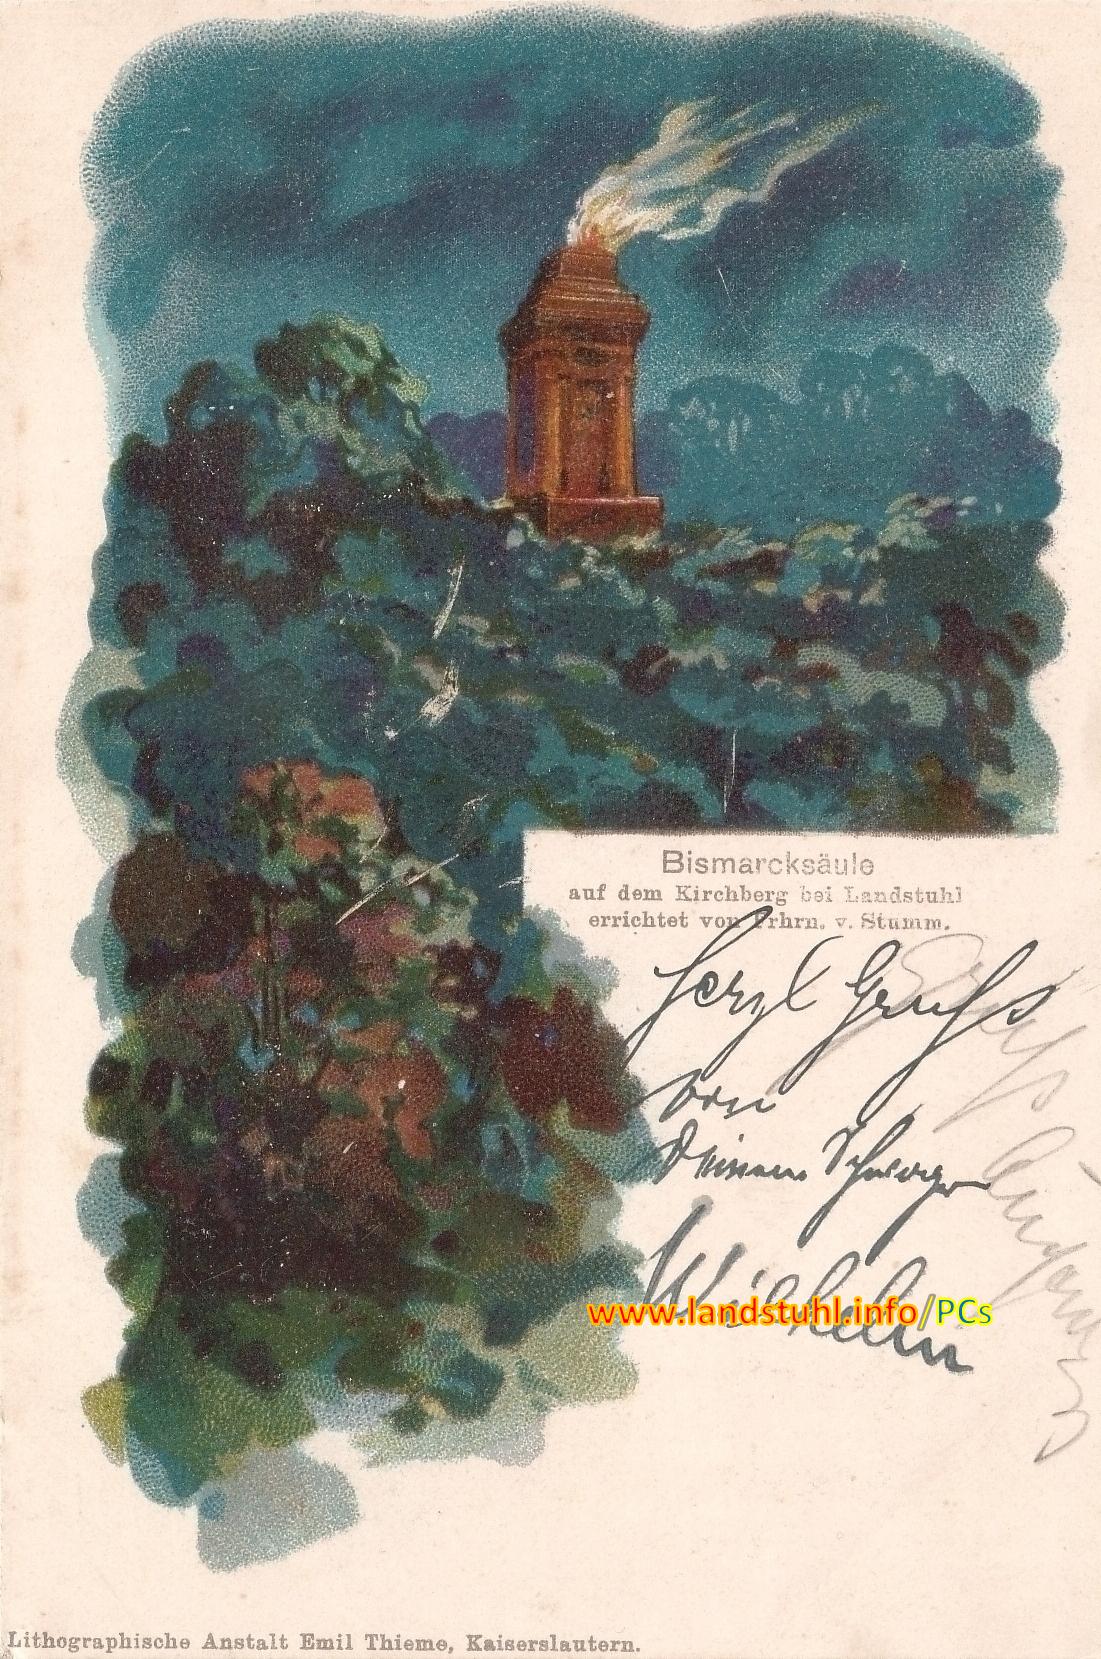 Bismarcksäule
auf dem Kirchberg bei Landstuhl
errichtet von Frhrn. v. Stumm.
Herzl Gruß
von
Deinem Schwager
Wilhelm
www.landstuhl.info/PCs
Lithographische Anstalt Emil Thieme, Kaiserslautern.